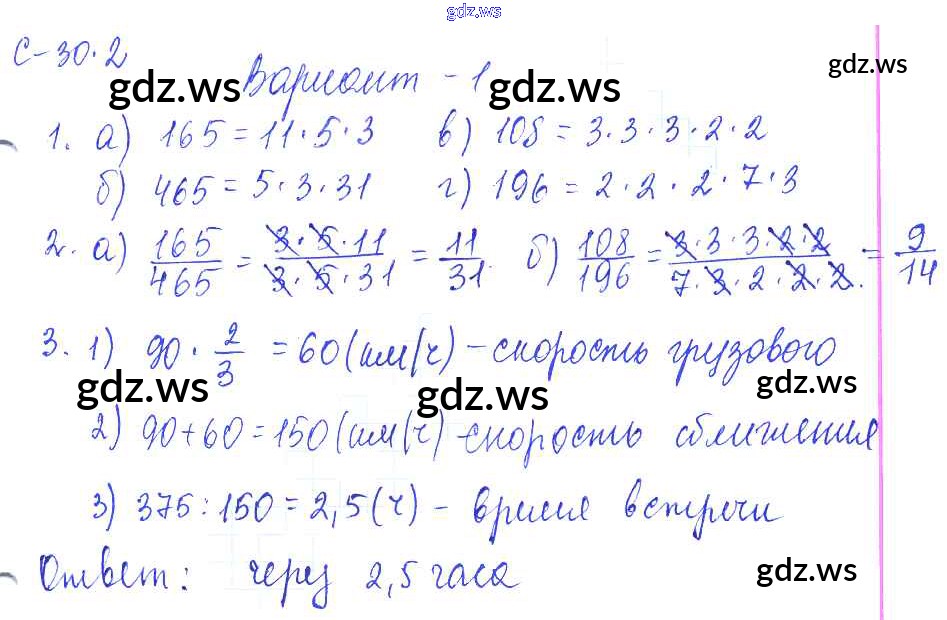 gdz.ws
С-30.2
Вариант - 1
gdz.ws gdz.ws gdz.ws
1. а) 165 = 11·5·3 в) 108 = 3·3·3·2·2
б) 465 = 5·3·31 г) 196 = 2·2·2·7·3
2. а) 165/465 = 3·5·11/3·5·31 = 11/31. б) 108/196 = 3·3·3·2·2/7·3·2·2·2. = 9/14
3. 1) 90 · 2/3 = 60 (км/ч) - скорость грузового
gdz.ws gdz.ws gdz.ws
2) 90+60 = 150 (км/ч) - скорость сближения
3) 375 : 150 = 2,5 (ч) - время встречи
Ответ: через 2,5 часа
gdz.ws